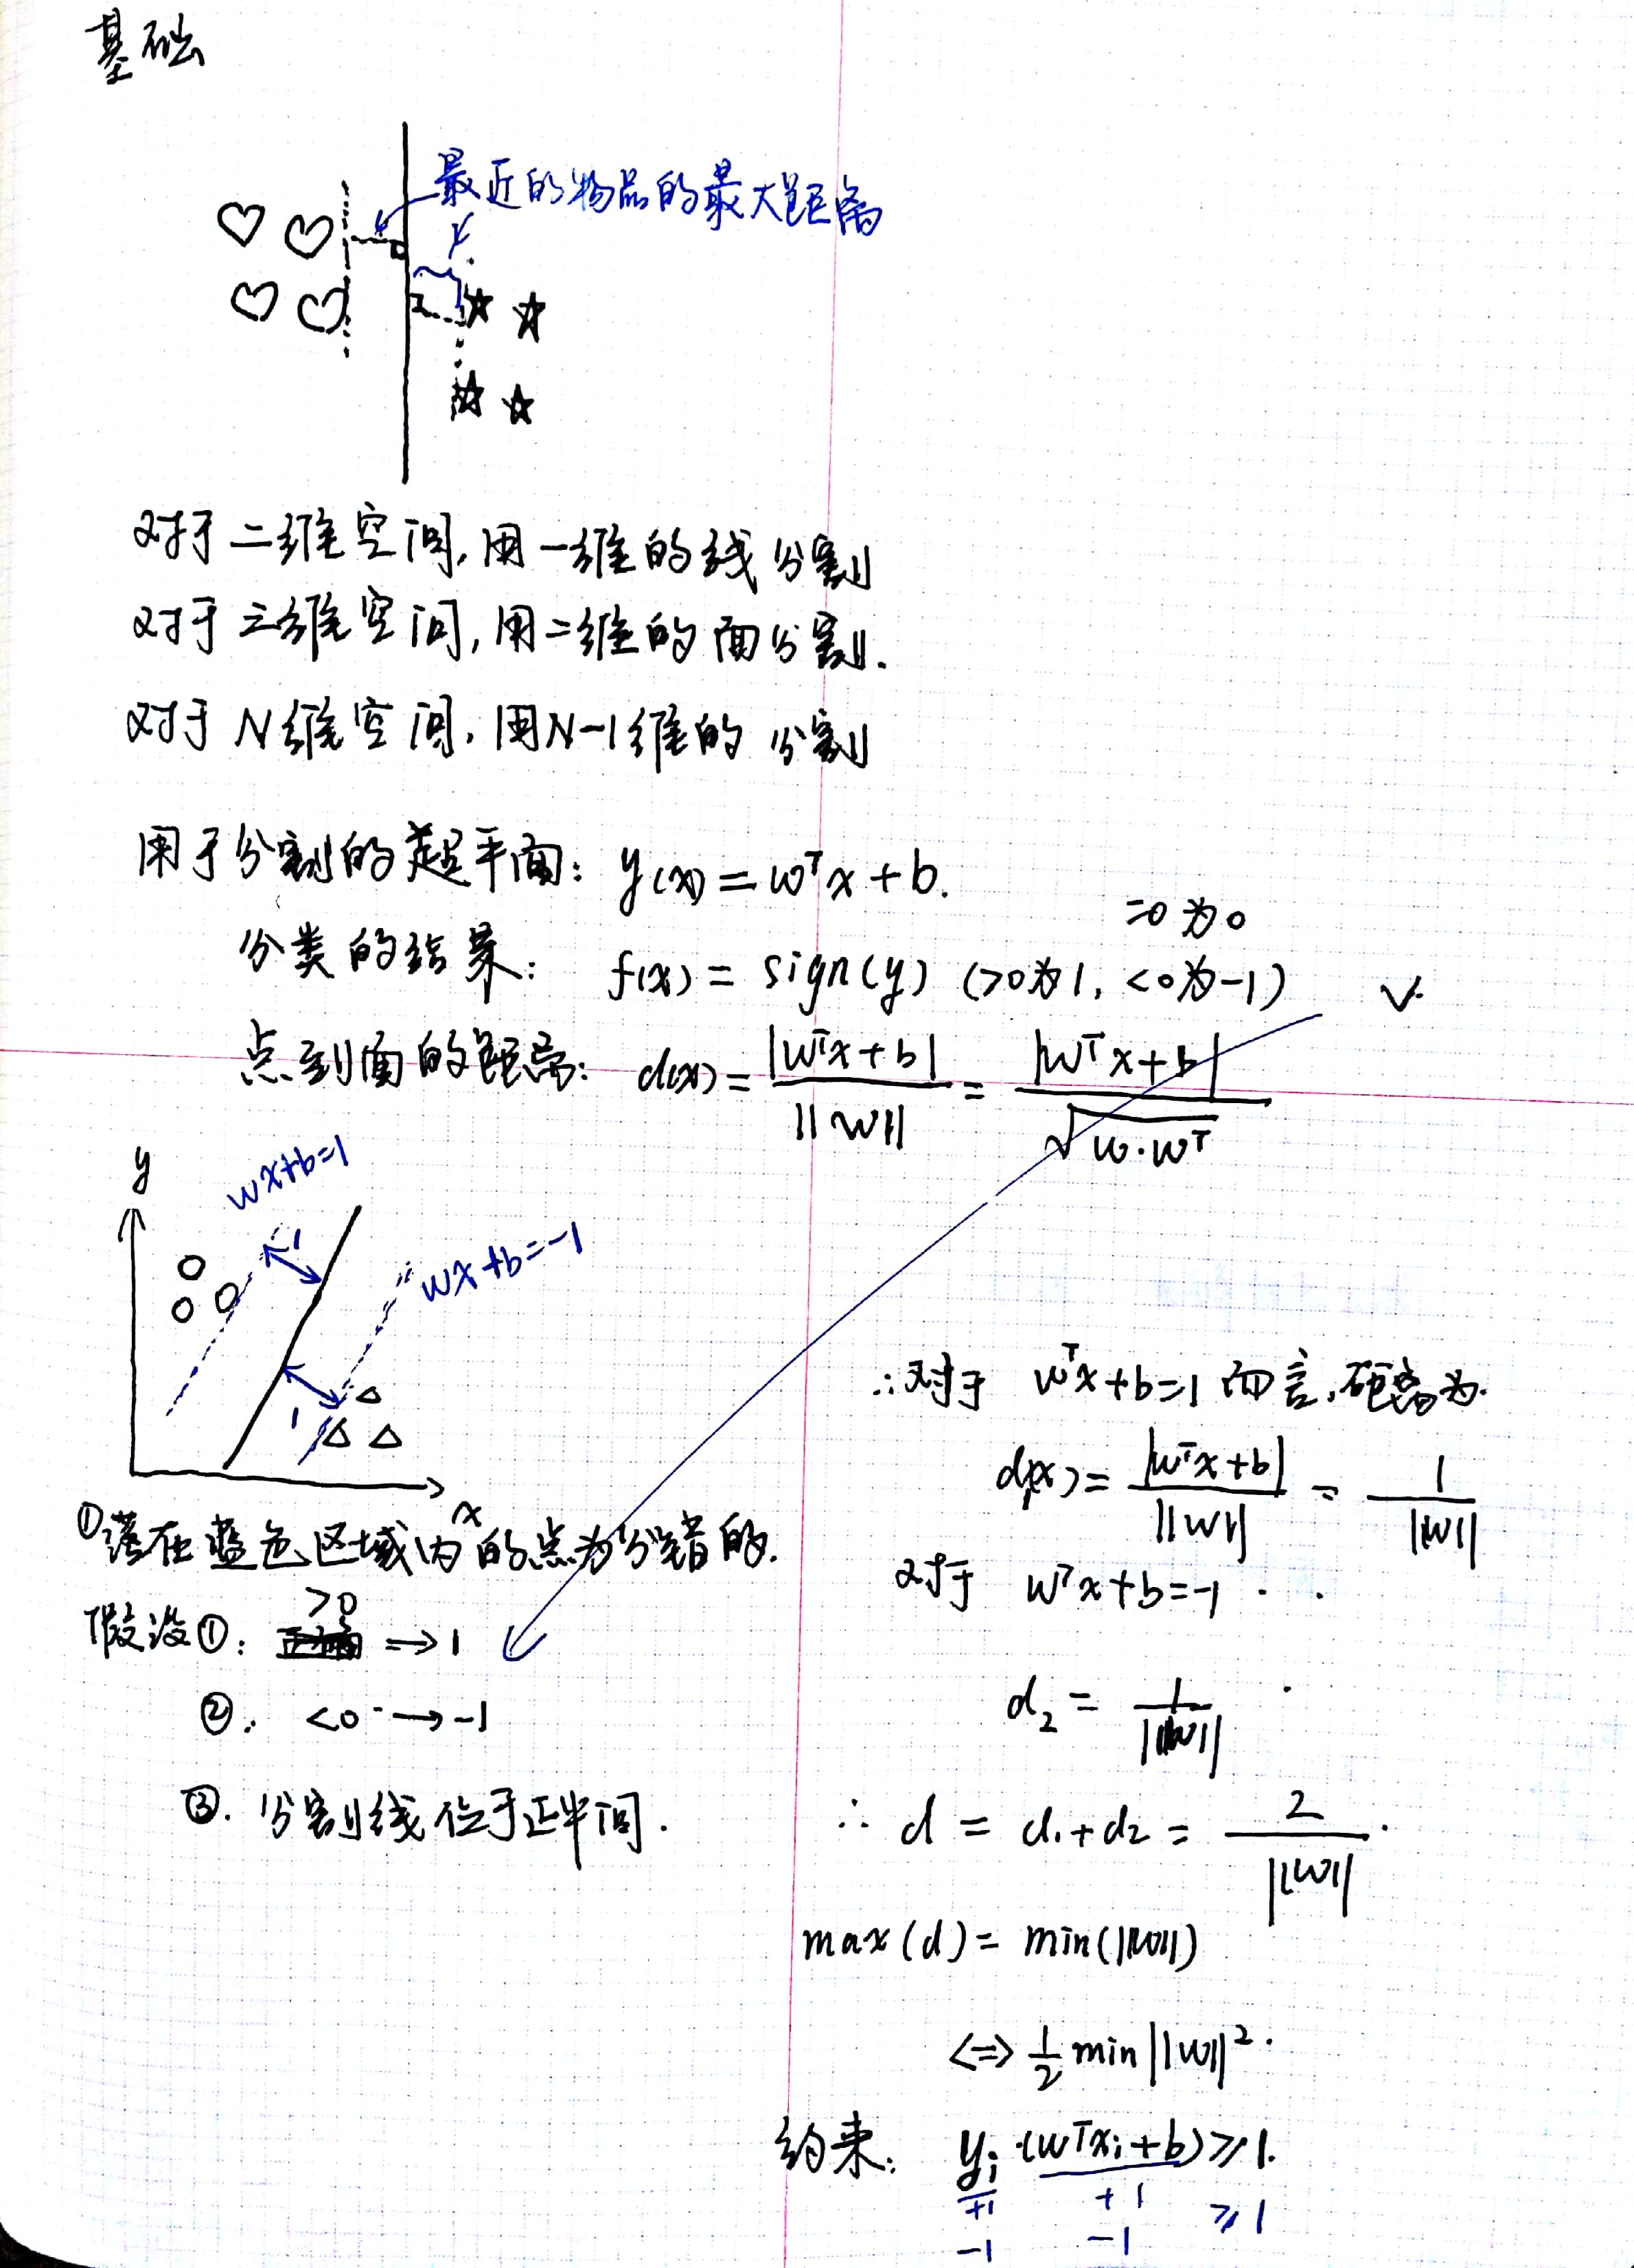 基础
最近的物品的最大距离
对于二维空间,用一维的线分割
对于三维空间,用二维的面分割.
对于N维空间,用N-1维的 分割
用于分割的超平面: y(x) = wᵀx + b.
=0为0
分类的结果: f(x) = sign(y) (>0为1, <0为-1) √.
点到面的距离: d(x) = |wᵀx + b| / ||w|| = |wᵀx + b| / √w·wᵀ
y
wx+b=1
1
wx+b=-1
1
x
①落在蓝色区域内的点为分错的.
假设①: >0 → 1
②. <0 → -1
③. 分割线位于正半间.
∴对于 wᵀx+b=1 而言,距离为.
d₁(x) = |wᵀx+b| / ||w|| = 1 / ||w||
对于 wᵀx+b=-1 . .
d₂ = 1 / ||w||
∴ d = d₁+d₂ = 2 / ||w|| .
max(d) = min(||w||)
<=> 1/2 min||w||².
约束: yᵢ·(wᵀxᵢ+b) ≥ 1.
+1 +1 ≥1
-1 -1